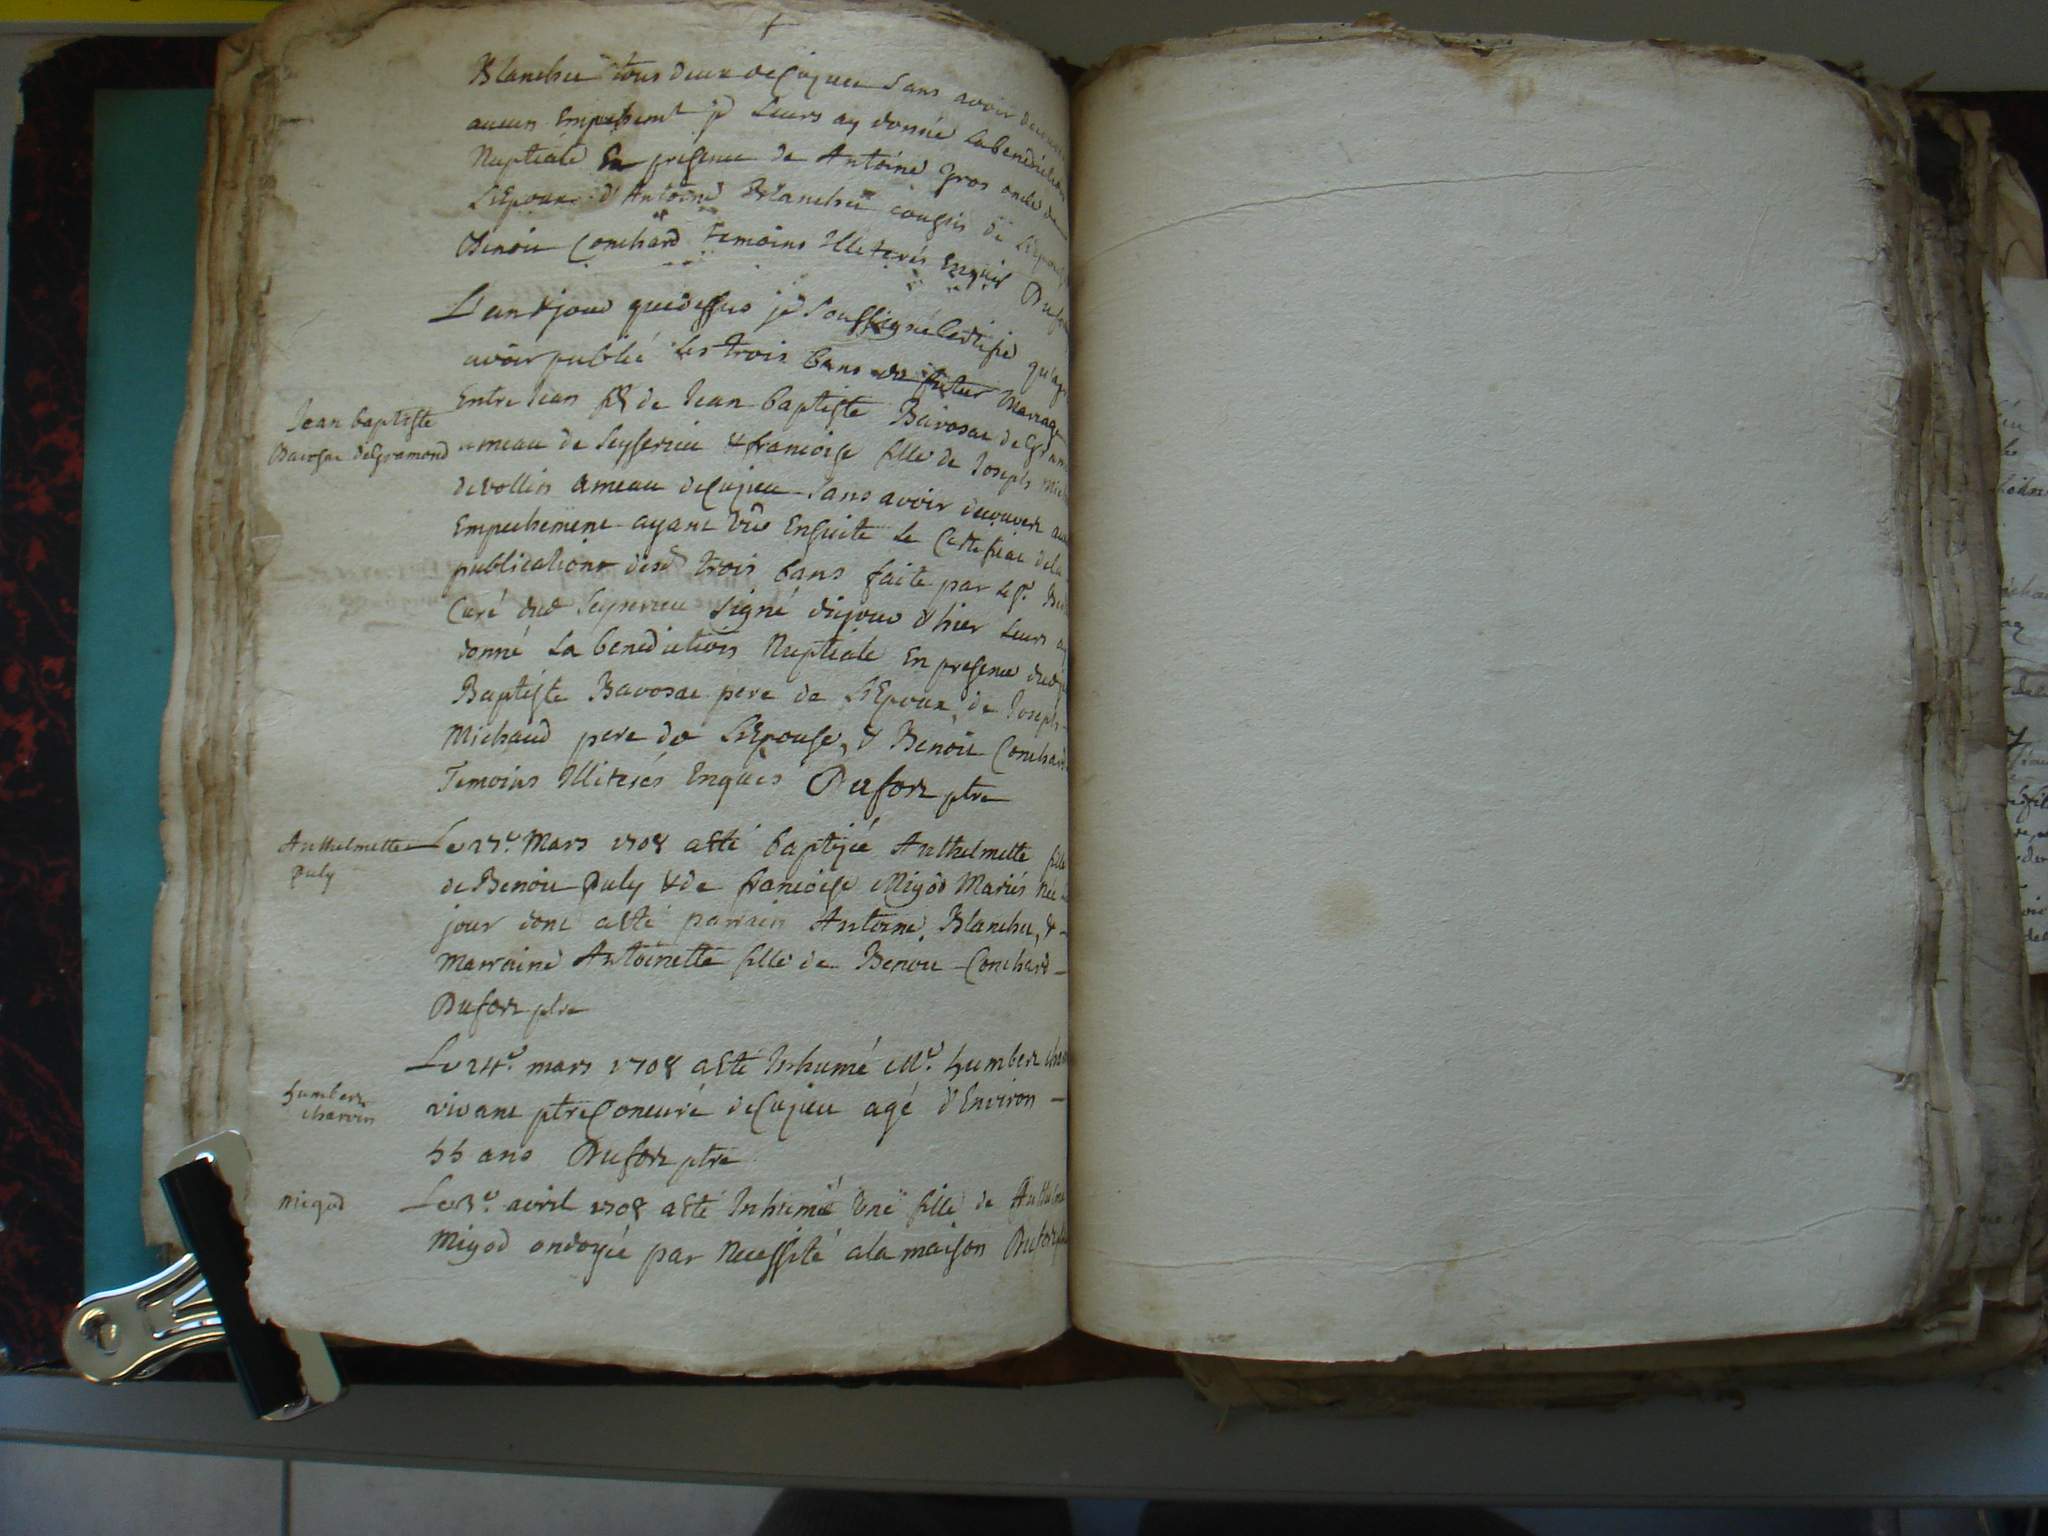 Blanchet tous deux de Cujeu sans avoir decouvert
aucun Empechemt je Leurs ay donné la benediction
Nuptiale En presence de Antoine gros oncle de
L'Epoux d'Antoine Blanchet cousin de L'Epouse
Benoit Conchard Temoins Illiterés Enquis Dufo
L'an & jour que dessus je soussigné Certifie qu'apr
avoir publié les trois bans du futur Mariage
Entre Jean fils de Jean baptiste Bavosat de Gram
ameau de Seysserieu & francoise fille de Joseph Mich
de vollin ameau de Cujeu sans avoir decouvert au
Empechement ayant vû Ensuite le Certificat de la
publication desd trois bans faite par le Sr.
Curé dud Seyserieu signé dujour d'hier Leurs ay
donné la benediction Nuptiale En presence dud
Baptiste Bavosat pere de L'Epoux, de Joseph
Michaud pere de L'Epouse, & Benoit Conchard
Temoins Illiterés Enquis Dufor ptre
Jean baptiste
Bavosat de Gramond
Le 17e. Mars 1708 a esté baptisée Anthelmette fille
de Benoit Puly & de francoise Migod Mariés Née le
jour dont a esté parrain Antoine Blanchet, &
Marraine Antoinette fille de Benoit Conchard
Dufor ptre
Anthelmette
Puly
Le 24e. mars 1708 a esté Inhumé Mre. humbert Char
vivant ptre Concuré de Cujeu agé d'Environ
55 ans Dufor ptre
humbert
charvin
Le 3e. avril 1708 a esté Inhumé Une fille de Anthelme
Migod ondoyée par Necessité a la maison Dufor
Migod